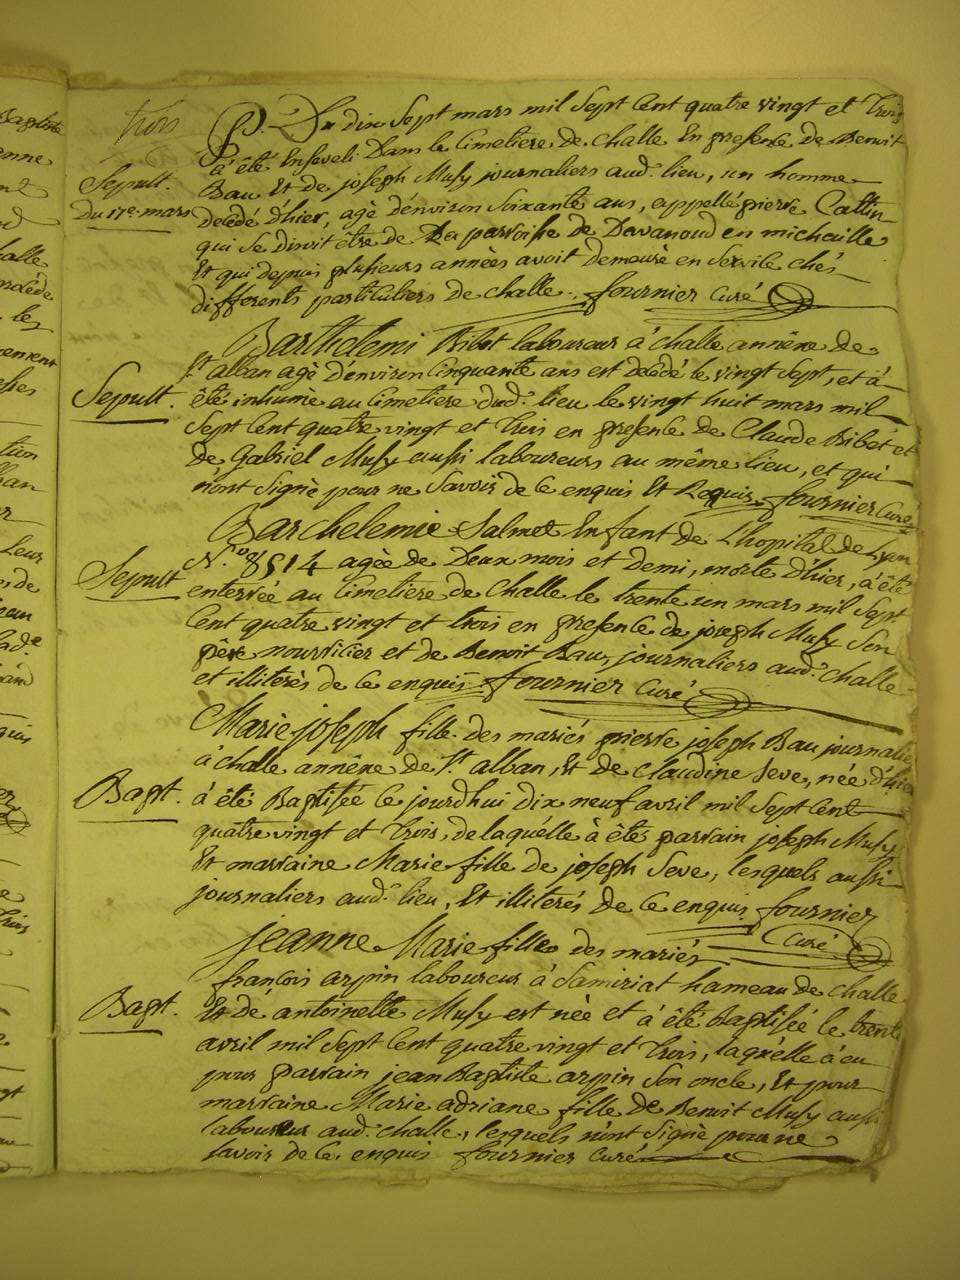 trois
Du dix Sept mars mil Sept Cent quatre vingt et trois
à été Enseveli Dans le Cimetiere de challe En presence de Benoit
Sepult.
Du 17e. mars
Bau Et de joseph Musy journaliers aud. lieu, un homme
decédé d'hier, agè d'environ Soixante ans, appellé pierre Cattin
qui Se disoit être de La paroisse de Davanoud en michaille
Et qui depuis plusieurs annèes avoit demeurè en Service chés
differents particuliers de challe. fournier Curé
Barthelemi Ribet laboureur à challe annêxe de
St. alban agè d'environ Cinquante ans est decédé le vingt Sept, et à
Sepult.
été inhumé au Cimetiere dud. lieu le vingt huit mars mil
Sept Cent quatre vingt et trois en presence de Claude Ribet et
de Gabriel Musy aussi laboureurs au même lieu, et qui
n'ont Signè pour ne Savoir de Ce enquis Et Requis fournier Curé
Barthelemie Salmet Enfant de L'hopital de Lyon
N.o 8514 agée de Deux mois et demi, morte d'hier, a été
Sepult
enterrée au Cimetiere de Challe le trente un mars mil Sept
Cent quatre vingt et trois en presence de joseph Musy Son
père nourricier et de Benoit Bau, journaliers aud. challe
et illiterés de Ce enquis. fournier Curé
Marie joseph fille des mariés pierre joseph Bau journalier
à challe annêxe de St. alban, Et de Claudine Seve, née d'hier
Bapt.
à été Baptisée Ce jourd'hui dix neuf avril mil Sept Cent
quatre vingt et trois, de laquélle à été parrain joseph Musy
Et marraine Marie fille de joseph Seve, lesquels aussi
journaliers aud. lieu, Et illiterés de Ce enquis fournier
Curé
jeanne Marie fille des mariés
françois arpin laboureur à Samiriat hameau de challe
Bapt.
Et de antoinette Musy est née et à été Baptisée le trente
avril mil Sept Cent quatre vingt et trois, laquélle à eu
pour parrain jean Baptiste arpin Son oncle, Et pour
marraine Marie adriane fille de Benoit Musy aussi
laboureur aud. challe, lesquels n'ont Signè pour ne
Savoir de Ce enquis fournier Curé